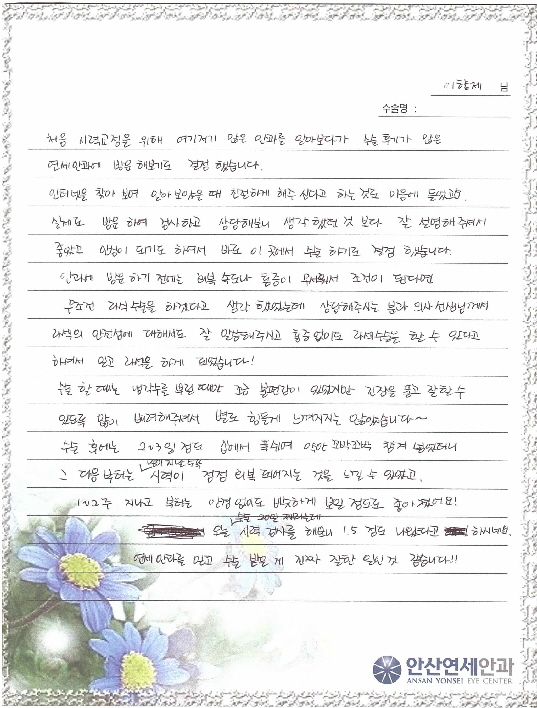 이향제 님
수술명 :
처음 시력교정을 위해 여기저기 많은 안과를 알아보다가 수술 후기가 많은
연세안과에 방문 해보기로 결정 했습니다.
인터넷을 찾아 보며 알아 보았을 때 친절하게 해주신다고 하는 것도 마음에 들었고요
실제로 방문 하여 검사하고 상담해보니 생각 했던 것 보다 잘 설명해 주셔서
좋았고 안심이 되기도 하여서 바로 이 곳에서 수술 하기로 결정 했습니다.
안과에 방문 하기 전에는 회복 속도나 통증이 무서워서 조건이 된다면
무조건 라섹수술을 하겠다고 생각 했었는데 상담해주시는 분과 의사 선생님께서
라섹의 안전성에 대해서도 잘 말씀해주시고 통증 없이도 라섹수술을 할 수 있다고
하여서 믿고 라섹을 하게 되었습니다!
수술 할 때는 냉각수를 뿌릴 때만 조금 불편감이 있었지만 긴장을 풀고 잘 할 수
있도록 많이 배려해주셔서 별로 힘들게 느껴지지는 않았습니다~
수술 후에는 2~3일 정도 집에서 푹 쉬며 안약 꼬박꼬박 챙겨 넣었더니
그 다음 부터는 시력이 점점 회복 되어지는 것을 느낄 수 있었고,
1~2주 지나고 부터는 안경 없이도 반듯하게 보일 정도로 좋아졌어요!
수술 20일 째되는데
오늘 시력 검사를 해보니 1.5 정도 나왔다고 하시네요.
연세안과를 믿고 수술 받은 게 진짜 잘한 일인 것 같습니다!!
안산연세안과
ANSAN YONSEI EYE CENTER